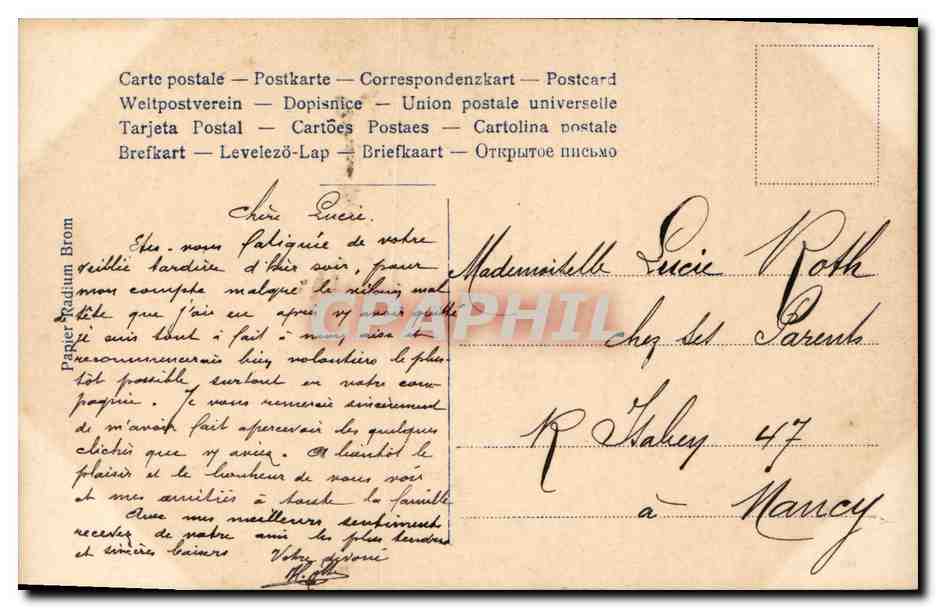 Carte postale — Postkarte — Correspondenzkart — Postcard
Weltpostverein — Dopisnice — Union postale universelle
Tarjeta Postal — Cartões Postaes — Cartolina postale
Brefkart — Levelezö-Lap — Briefkaart — Открытое письмо
Papier Radium Brom
Chère Lucie.
Etes-vous fatiguée de votre
veillée tardive d'hier soir, pour
mon compte malgré le vilain mal
tête que j'ai eu après vous avoir quitté
je suis tout à fait à mon aise et
recommencerais bien volontiers le plus
tôt possible surtout en votre com-
pagnie. Je vous remercie sincèrement
de m'avoir fait apercevoir les quelques
clichés que vous aviez. A bientôt le
plaisir et le bonheur de vous voir
et mes amitiés à toute la famille
Avec mes meilleurs sentiments
recevez de notre ami les plus tendres
et sincères baisers
Votre dévoué
Mademoiselle Lucie Roth
chez ses Parents
R Isabey 47
à Nancy
CPAPHIL